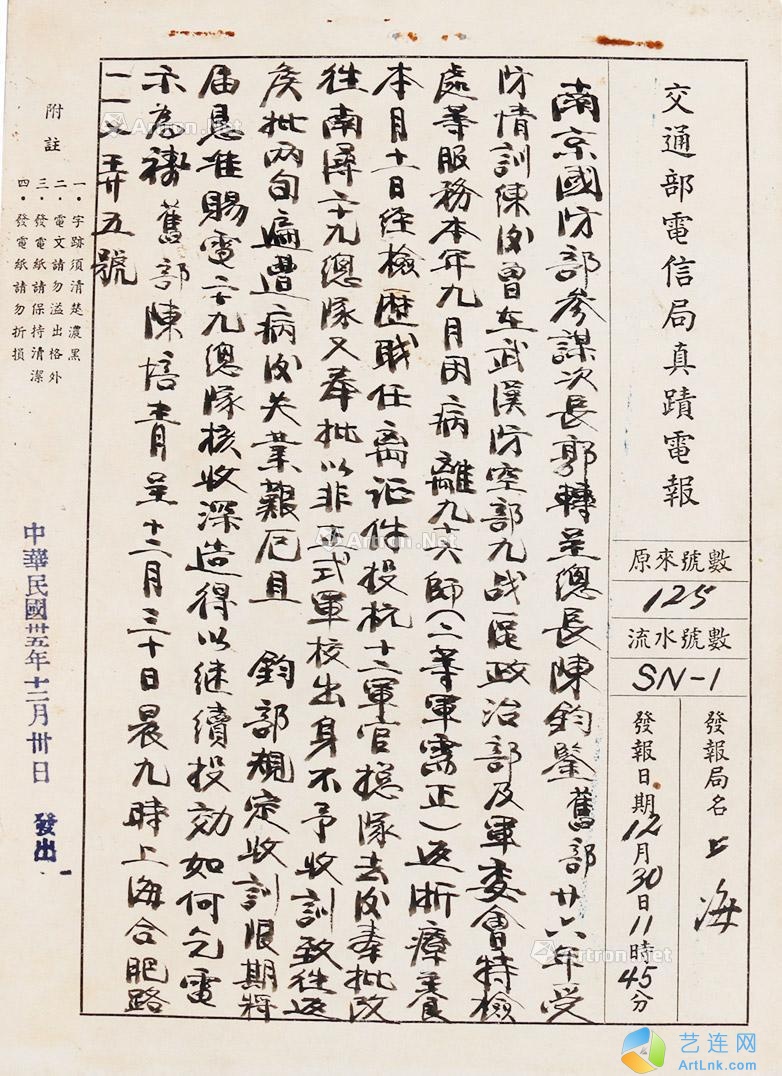 交通部電信局真蹟電報
原來號數
125
流水號數
SN-1
發報局名 上海
發報日期 12月30日11時45分
南京國防部參謀次長郭轉呈總長陳鈞鑒舊部廿六年受
防情訓陳後曾在武漢防空部九战区政治部及軍委會特檢
處等服務本年九月因病離九十六師(二等軍需正)返浙療養
本月十一日經檢歷戰任离証件投杭十二軍官總隊去後奉批改
往南潯二十九總隊又奉批以非正式軍校出身不予收訓致往返
矦批兩旬遍遭病後失業艱厄且 鈞部規定收訓限期將
届恳准賜電二十九總隊核收深造得以继續投効如何乞電
示为禱舊部陳培青呈十二月三十日晨九時上海合肥路
廿五號
附註
一・字跡須清楚濃黑
二・電文請勿溢出格外
三・發電紙請保持清潔
四・發電紙請勿折損
中華民國卅五年十二月卅日 發出
Artron.Net
Artron.Net
Artron.Net
Artron.Net
艺连网
ArtLnk.com